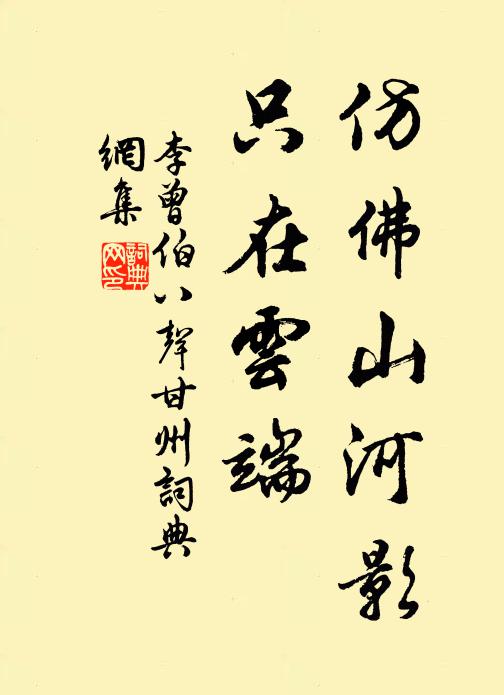 仿佛山河影
只在雲端
李曾伯八聲甘州詞典
網集
詞典
网印